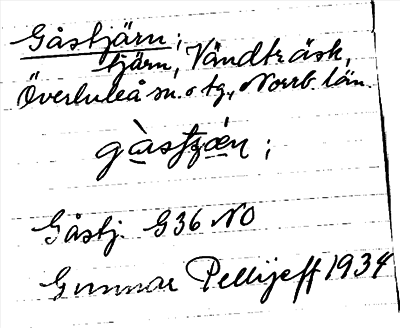 Gåstjärn;
tjärn, Vändträsk,
Överluleå sn. o tg., Norrb. län.
gàstjæn;
Gåstj. G36 NO
Gunnar Pellijeff 1934